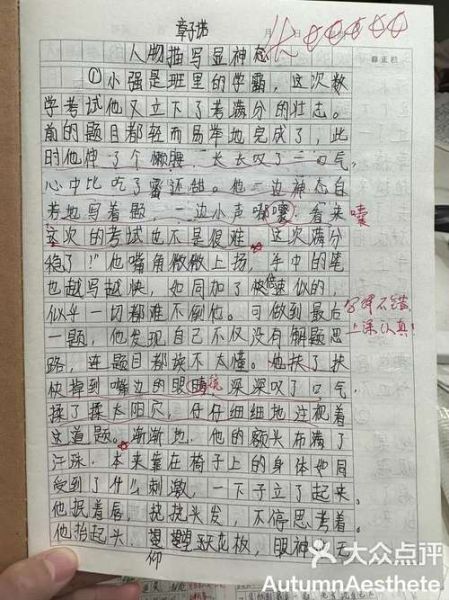 章子诺
月 日
人物描写显神态
订正栏
①小强是班里的学霸，这次数
学考试他又立下了考满分的壮志。
前的题目都轻而易举地完成了，此
时他伸了个懒腰，长长叹了一口气，
心中比吃了蜜还甜。他一边神态自
考地写着题，一边小声嘟囔：看来 囔
这次的考试也不是很难，这次满分
稳了！”他嘴角微微上扬，手中的笔
也越写越快，如同加了倍速似的，
似乎一切都难不倒他。可做到最后
字样不错，
上课认真！
一题，他发现自己不仅没有解题思
路，连题目都读不太懂。他扶了扶
快掉到嘴边的眼镜，深深叹了口气，
揉了揉太阳穴，仔仔细细地注视着
这道题。渐渐地，他的额头布满了
汗珠，本来靠在椅子上的身体如同
受到了什么刺激，一下子立了起来。
他抿着唇，挠挠头发，不停思考着。
他抬起头，仰望天花板，眼神
大众点评
AutumnAesthete